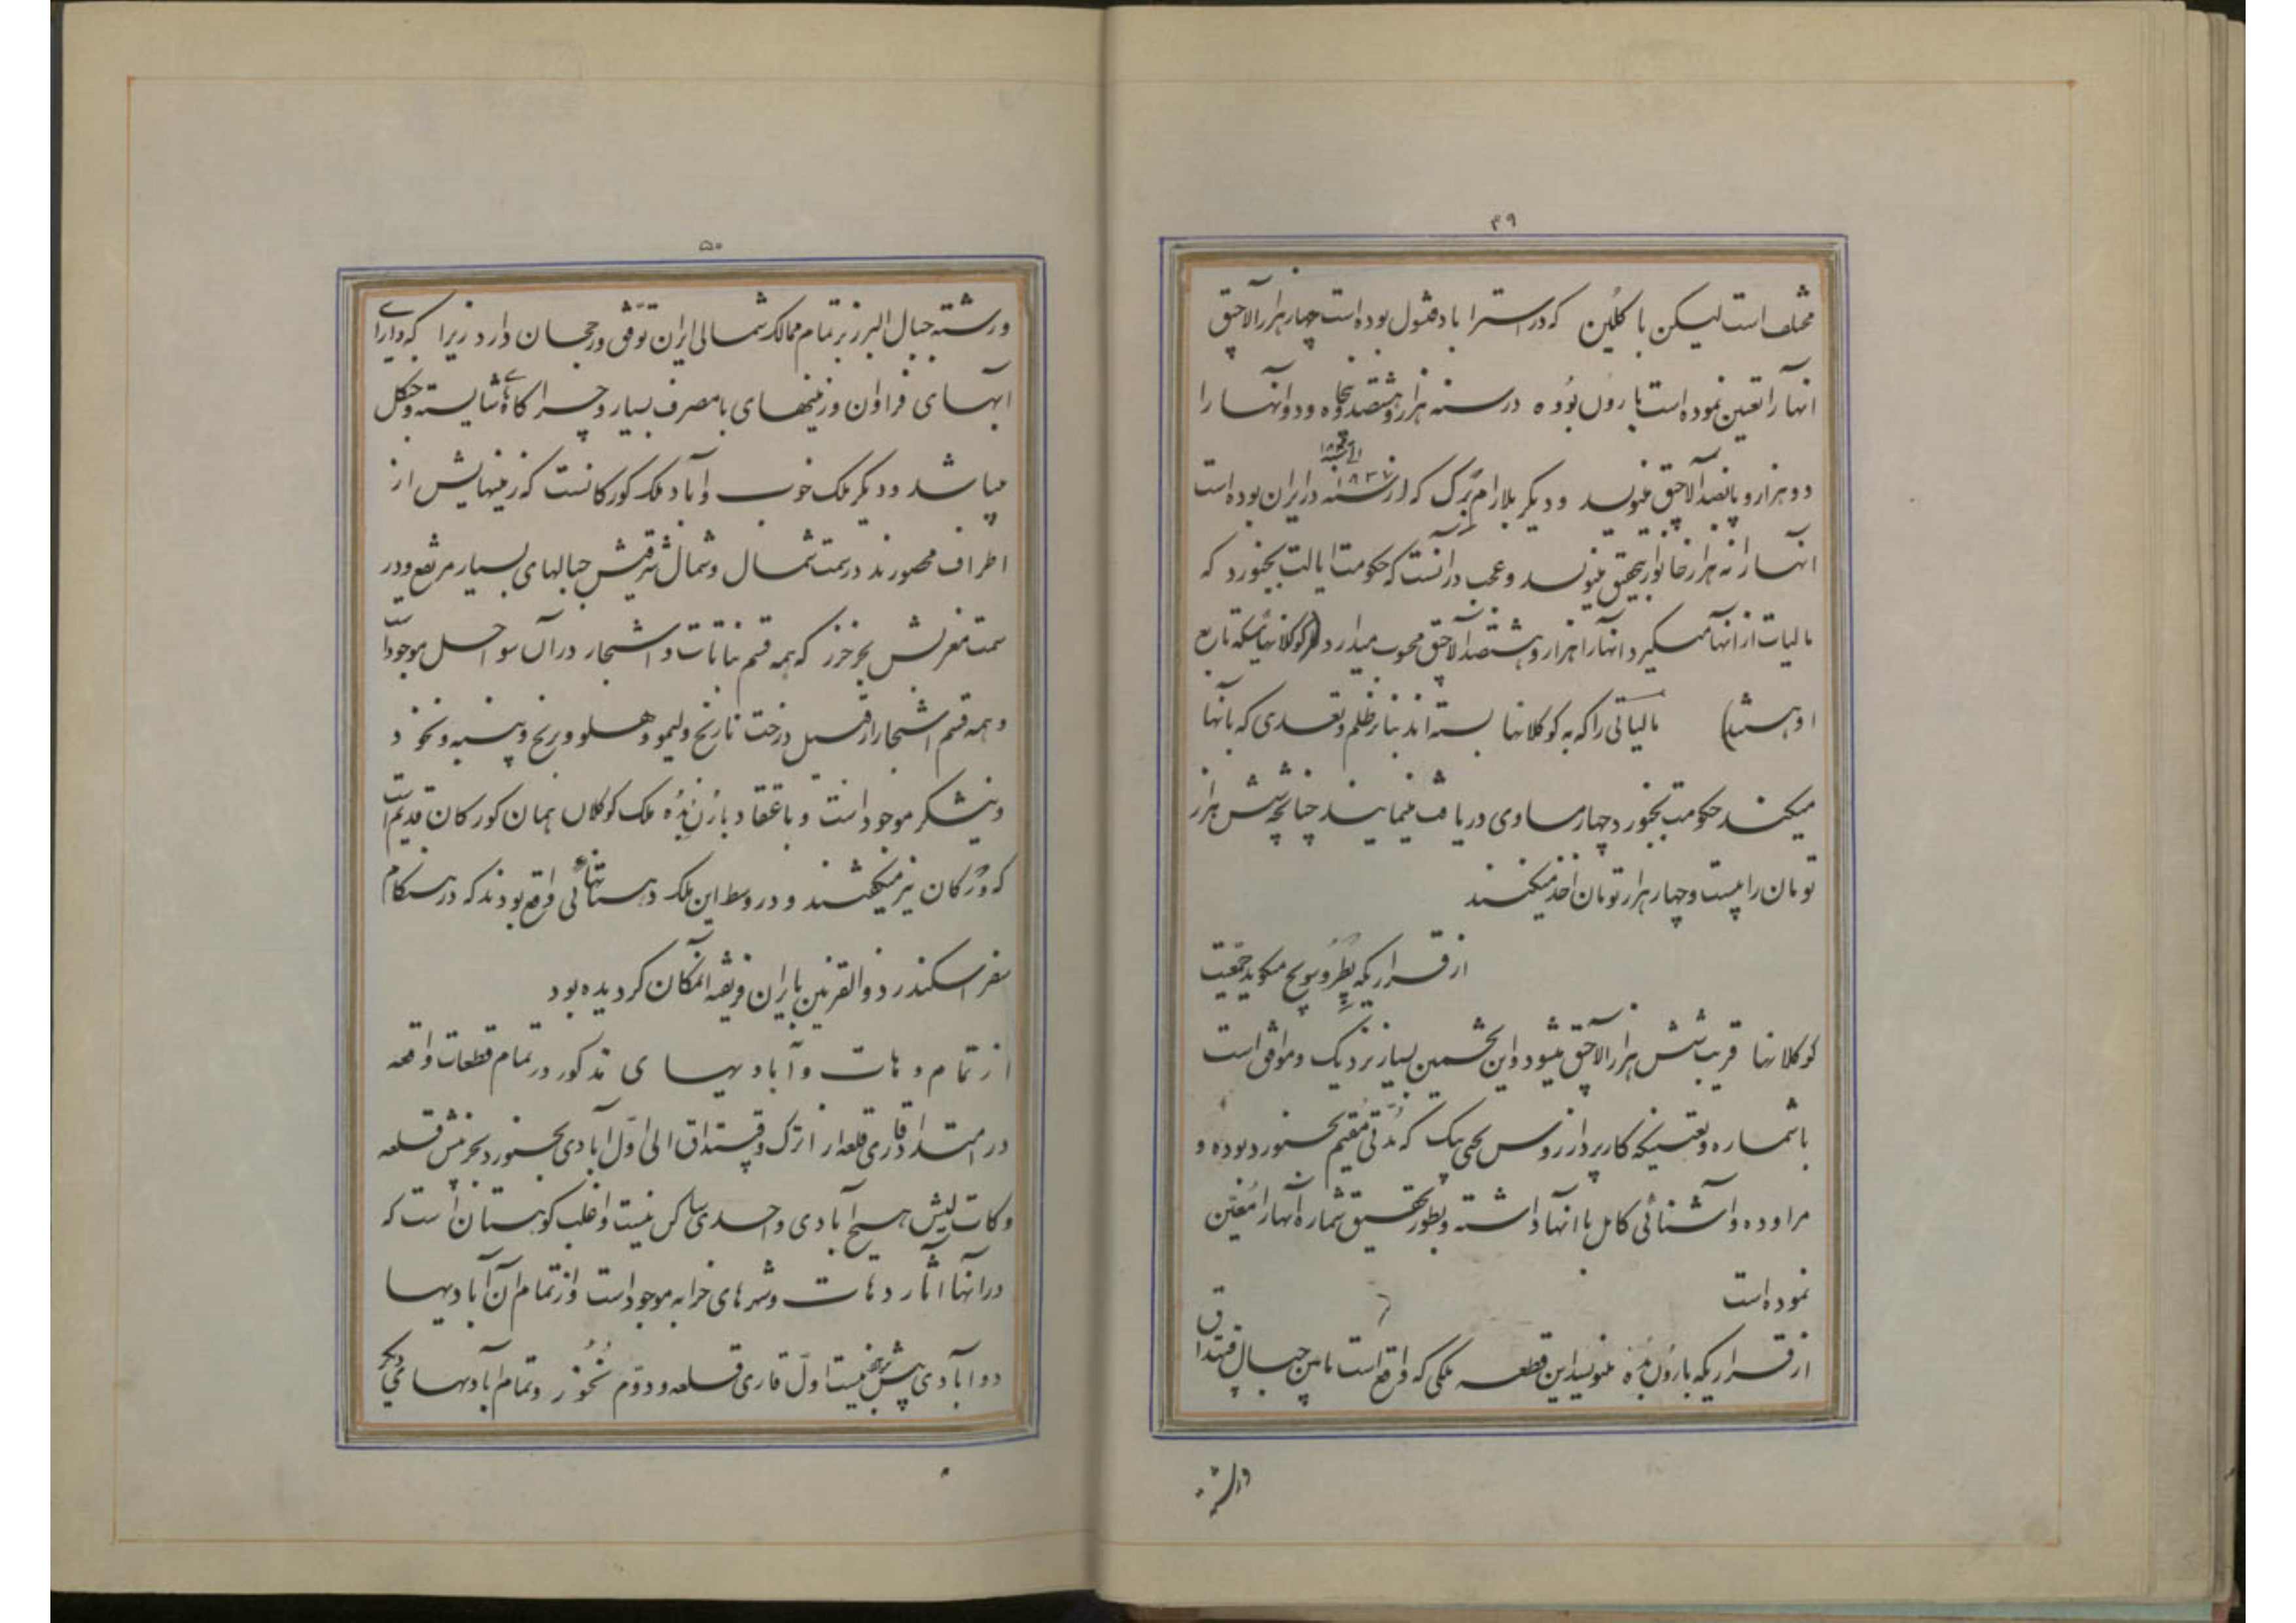 ۴۹
مختلف است لیکن باکلین که در استراباد قنسول بوده است چهار هزار آلاچق
انها را تعین نموده است بارون بوده در سنه هزار و هشتصد و پنجاه و دو انها را
دو هزار و پانصد آلاچق مینویسد و دیگر بلارامبرک که از سنه ۱۸۳۷ الی سنه در ایران بوده است
انها را نه هزار خانوار بتحقیق مینویسد و عجب در آنست که حکومت ایالت بجنورد که
مالیات از انها میگیرد انها را هزار و هشتصد آلاچق محسوب میدارد (کوکلانهائیکه تابع
او هستند) مالیاتی را که به کوکلانها بسته اند بنا بر ظلم و تعدی که بانها
میکنند حکومت بجنورد چهار مساوی دریافت مینمایند چنانچه شش هزار
تومان را بیست و چهار هزار تومان اخذ میکنند
از قراریکه پطروسویچ میکوید جمعیت
کوکلانها قریب شش هزار آلاچق میشود و این تخمین بسیار نزدیک و موافق است
با شماره و تعینیکه کارپرداز روس یحیی بیک که مدتی مقیم بجنورد بوده و
مراوده و آشنائی کامل با انها داشته و بطور تحقیق شماره آنها را معین
نموده است
از قراریکه بارون بده مینویسد این قطعه ملکی که واقع است مابین جبال قپتداق
ورشته
۵۰
ورشته جبال البرز بر تمام ممالک شمالی ایران تفوق و رجحان دارد زیرا که دارای
ابهای فراوان و زمینهای بامصرف بسیار و چراکاه های شایسته و جنکل
میباشد و دیگر ملک خوب و آباد ملک کورکانست که زمینهایش از
اطراف محصورند در سمت شمال و شمال شرقیش جبالهای بسیار مرتفع و در
سمت مغربش بحر خزر که همه قسم نباتات و اشجار در آن سواحل موجود است
و همه قسم اشجار از قبیل درخت نارنج و لیمو و هلو و برنج و پنبه و نخود
و نیشکر موجود است و باعتقاد بارن بده ملک کوکلان همان کورکان قدیم است
که ورکان نیز میکفتند و در وسط این ملک دهستانهائی واقع بودند که در هنکام
سفر اسکندر ذوالقرنین بایران فریفته آنمکان کردیده بود
از تمام دهات و آبادیهای مذکور در تمام قطعات واقعه
در امتداد قاری قلعه از اترک و قپتداق الی اول آبادی بجنورد بجز مینش قلعه
و کات لیش هیچ آبادی واحدی ساکن نیست و اغلب کوهستان است که
در انها اثار دهات و شهرهای خرابه موجود است و از تمام آن آبادیها
دو ابادی بیش نیست اول قاری قلعه و دوم نخور و تمام آبادیهای دیکر